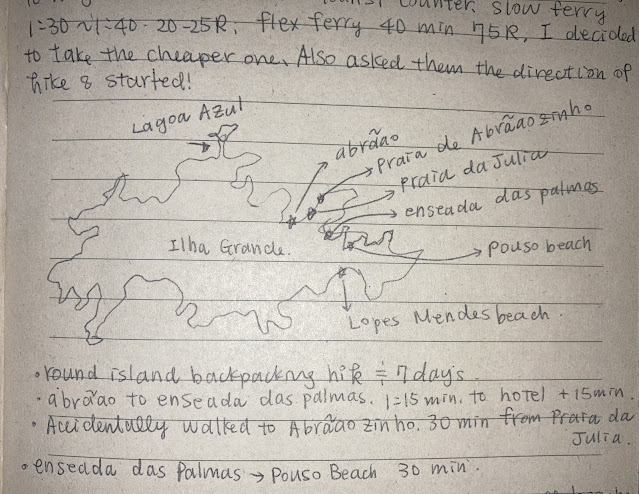 counter, slow ferry
1:30~1:40 · 20-25R, flex ferry 40 min 75R, I decided
to take the cheaper one. Also asked them the direction of
hike & started!
Lagoa Azul
abrãao
praia de Abrãaozinho
praia da Julia
enseada das palmas
Ilha Grande.
pouso beach
Lopes Mendes beach.
· round island backpacking hike ≒ 7 days
· abrãao to enseada das palmas. 1:15 min. to hotel + 15 min.
· Accidentally walked to Abrãao zinho. 30 min from Praia da
Julia.
· enseada das Palmas → Pouso Beach 30 min.